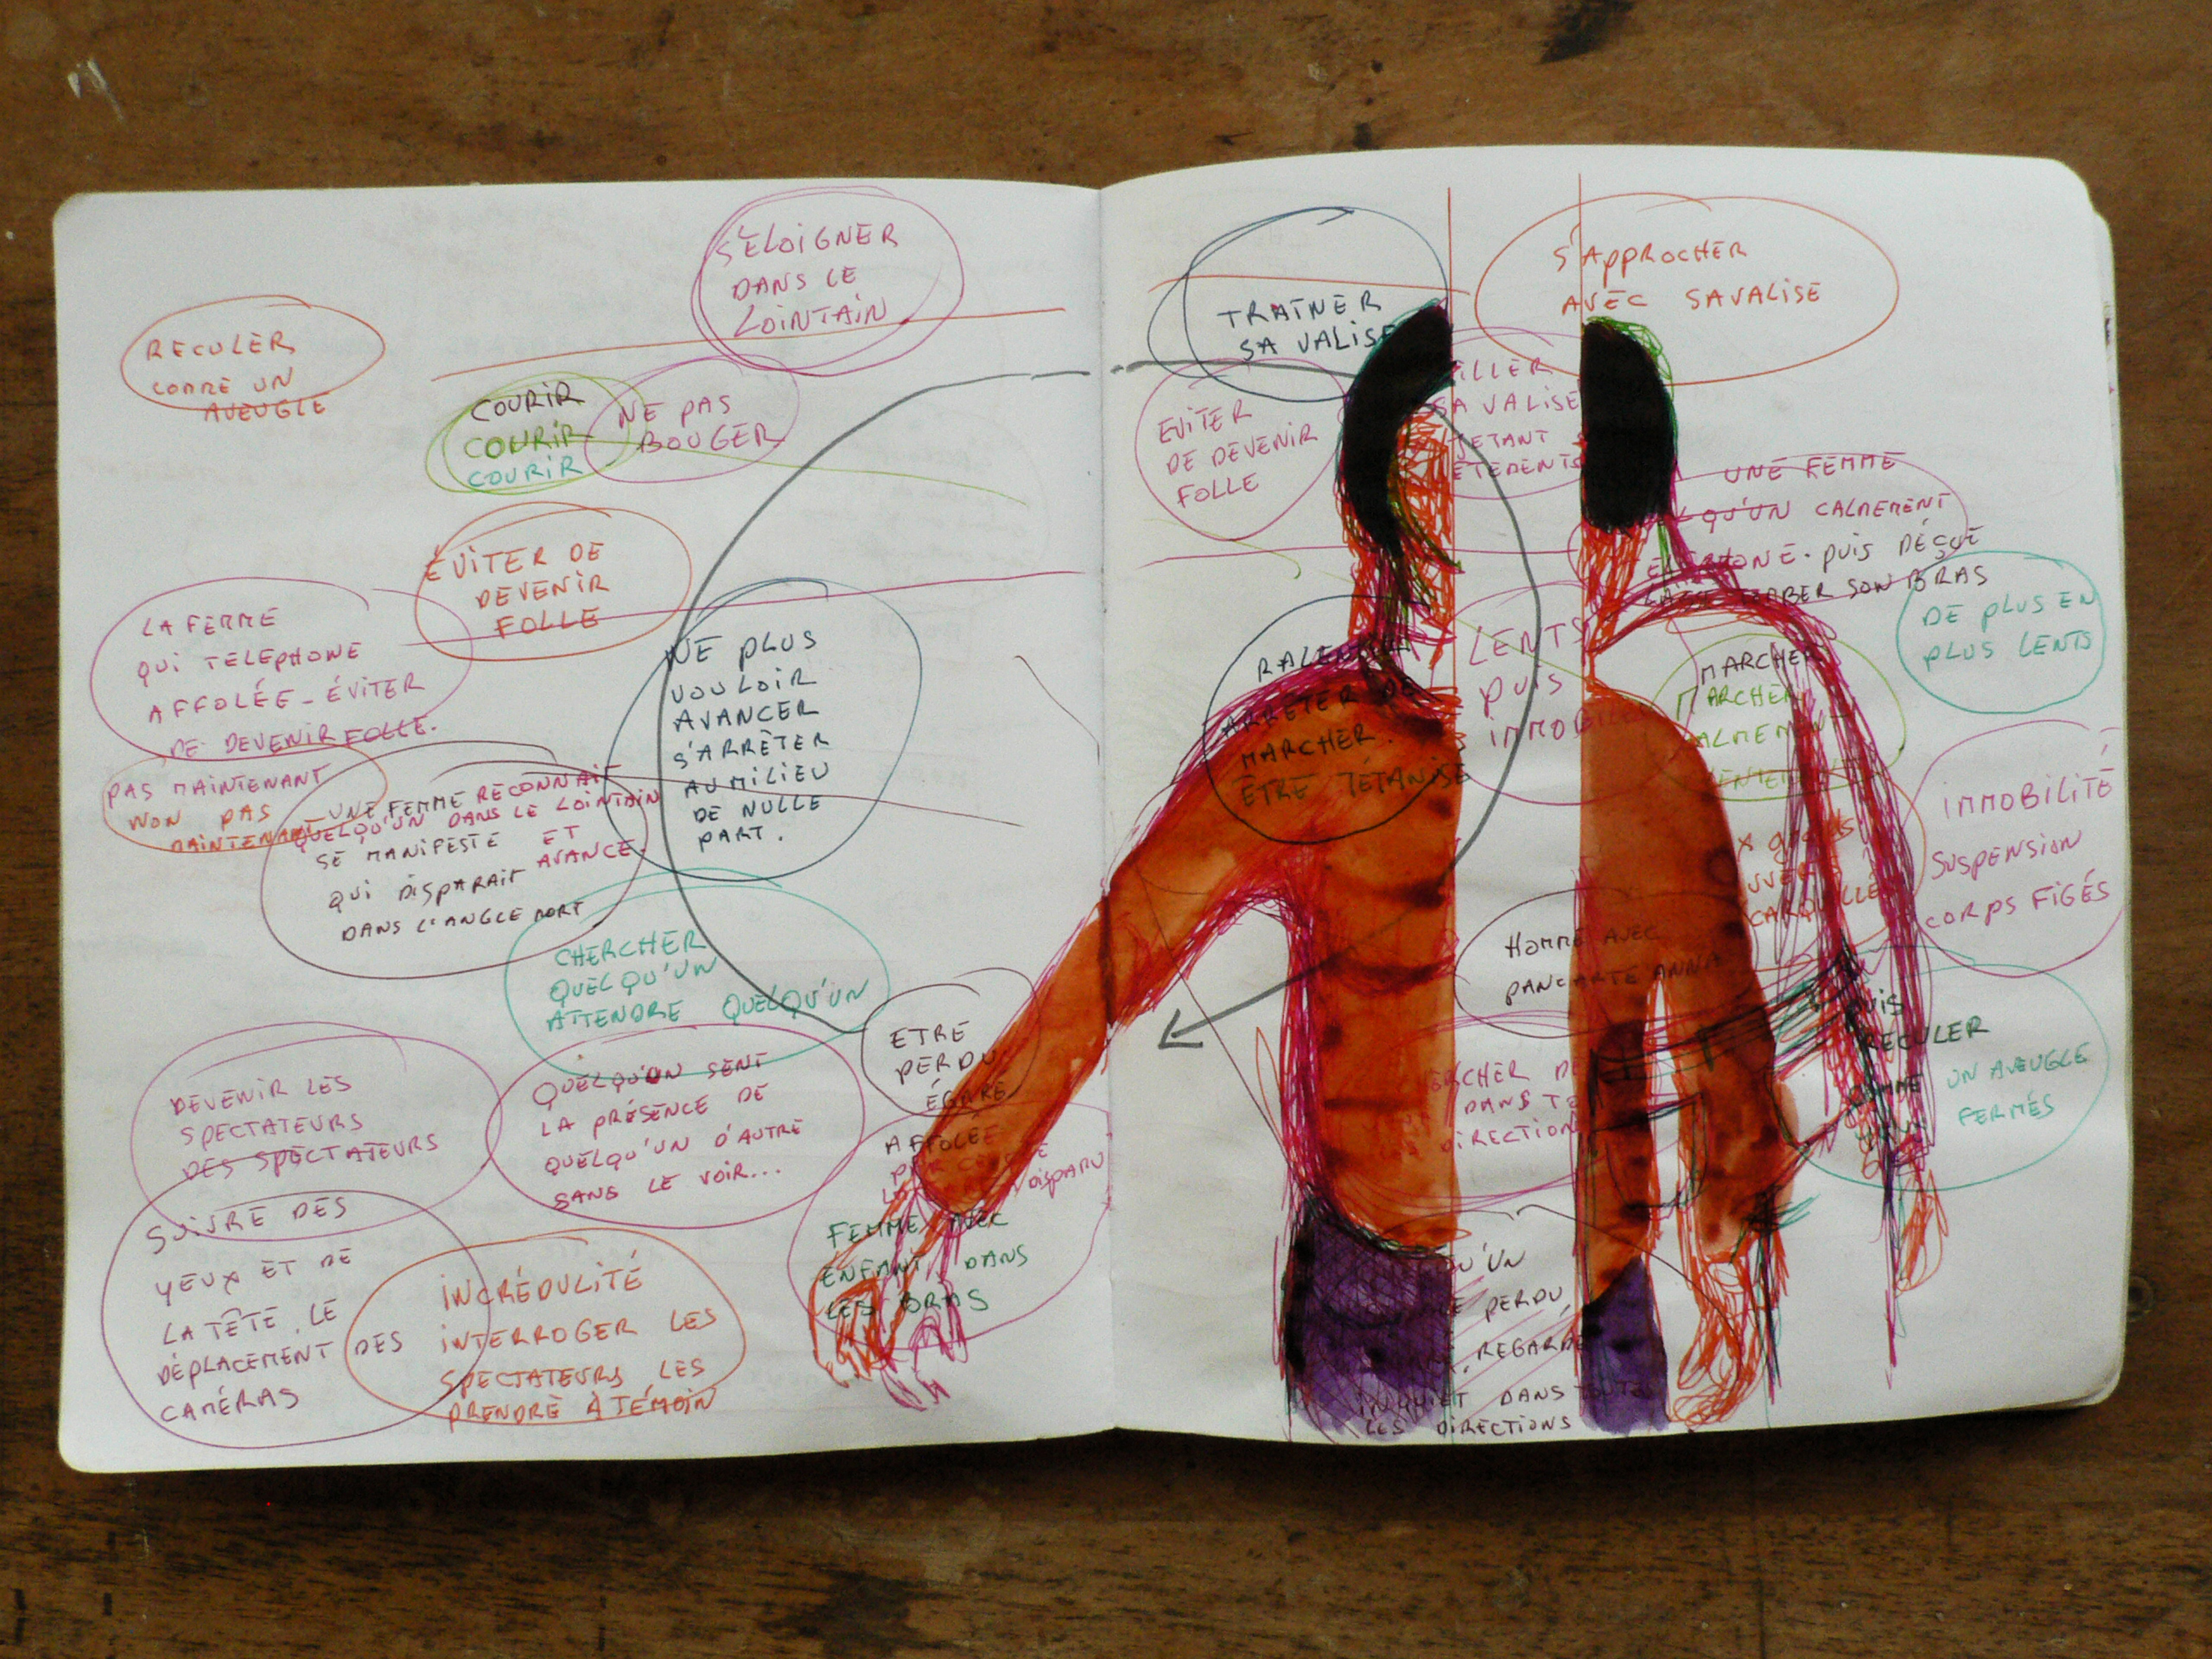 S'ÉLOIGNER
DANS LE
LOINTAIN
RECULER
COMME UN
AVEUGLE
COURIR
COURIR
COURIR
NE PAS
BOUGER
ÉVITER DE
DEVENIR
FOLLE
LA FEMME
QUI TÉLÉPHONE
AFFOLÉE - ÉVITER
DE DEVENIR FOLLE.
PAS MAINTENANT
NON PAS
MAINTENANT
UNE FEMME RECONNAIT
QUELQU'UN DANS LE LOINTAIN
SE MANIFESTE ET
AVANCE.
QUI DISPARAIT
DANS L'ANGLE MORT
NE PLUS
VOULOIR
AVANCER
S'ARRÊTER
AU MILIEU
DE NULLE
PART.
CHERCHER
QUELQU'UN
ATTENDRE QUELQU'UN
ETRE
PERDU
ÉGARÉ
DEVENIR LES
SPECTATEURS
DES SPECTATEURS
QUELQU'UN SENT
LA PRÉSENCE DE
QUELQU'UN D'AUTRE
SANS LE VOIR...
AFFOLÉE
DISPARU
FEMME AVEC
ENFANT, DANS
LES BRAS
SUIVRE DES
YEUX ET DE
LA TÊTE, LE
DÉPLACEMENT DES
CAMÉRAS
INCRÉDULITÉ
INTERROGER LES
SPECTATEURS LES
PRENDRE À TÉMOIN
TRAÎNER
SA VALISE
S'APPROCHER
AVEC SA VALISE
EVITER
DE DEVENIR
FOLLE
SA VALISE
UNE FEMME
QU'UN CALMEMENT
PUIS DÉÇUE
SON BRAS
DE PLUS EN
PLUS LENTS
LENTS
PUIS
ARRÊTER DE
MARCHER.
ÊTRE TÉTANISÉ
MARCHER
MARCHER
IMMOBILITÉ
SUSPENSION
CORPS FIGÉS
HOMME AVEC
PANCARTE ANNA
DANS
DIRECTION
PUIS
RECULER
COMME UN AVEUGLE
FERMÉS
QU'UN
PERDU
REGARDE
INQUIET DANS TOUTES
LES DIRECTIONS